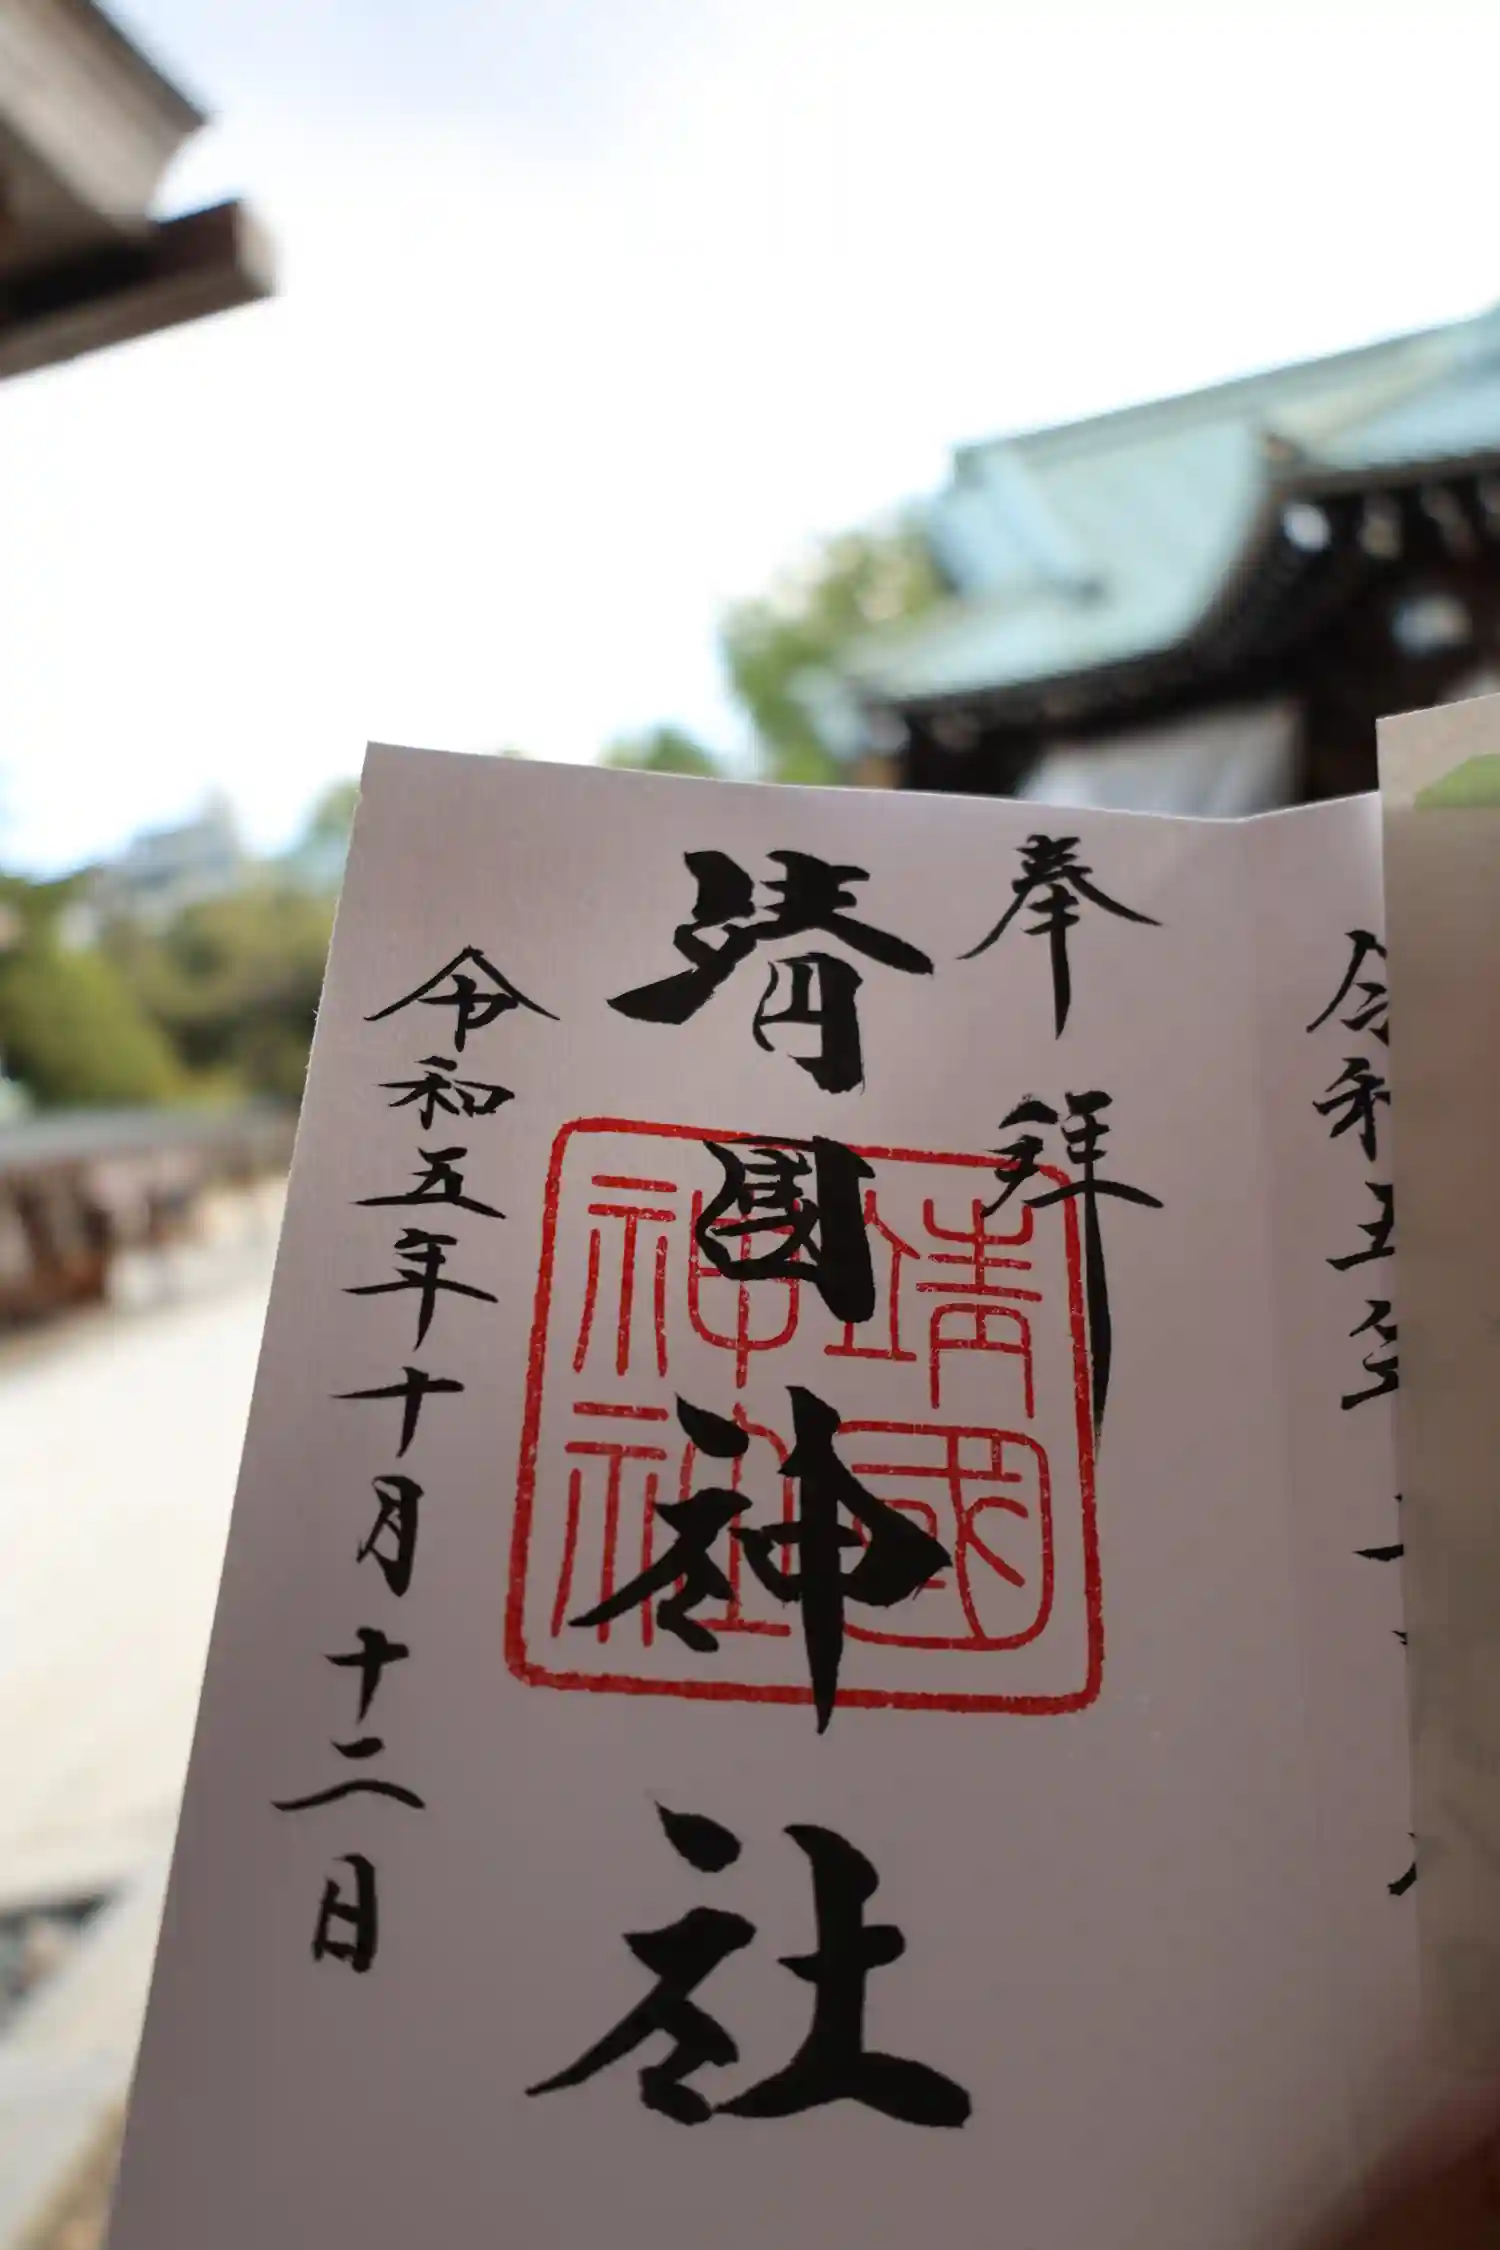 奉拝
靖國神社
靖國神社
令和五年十月十二日
令和五年